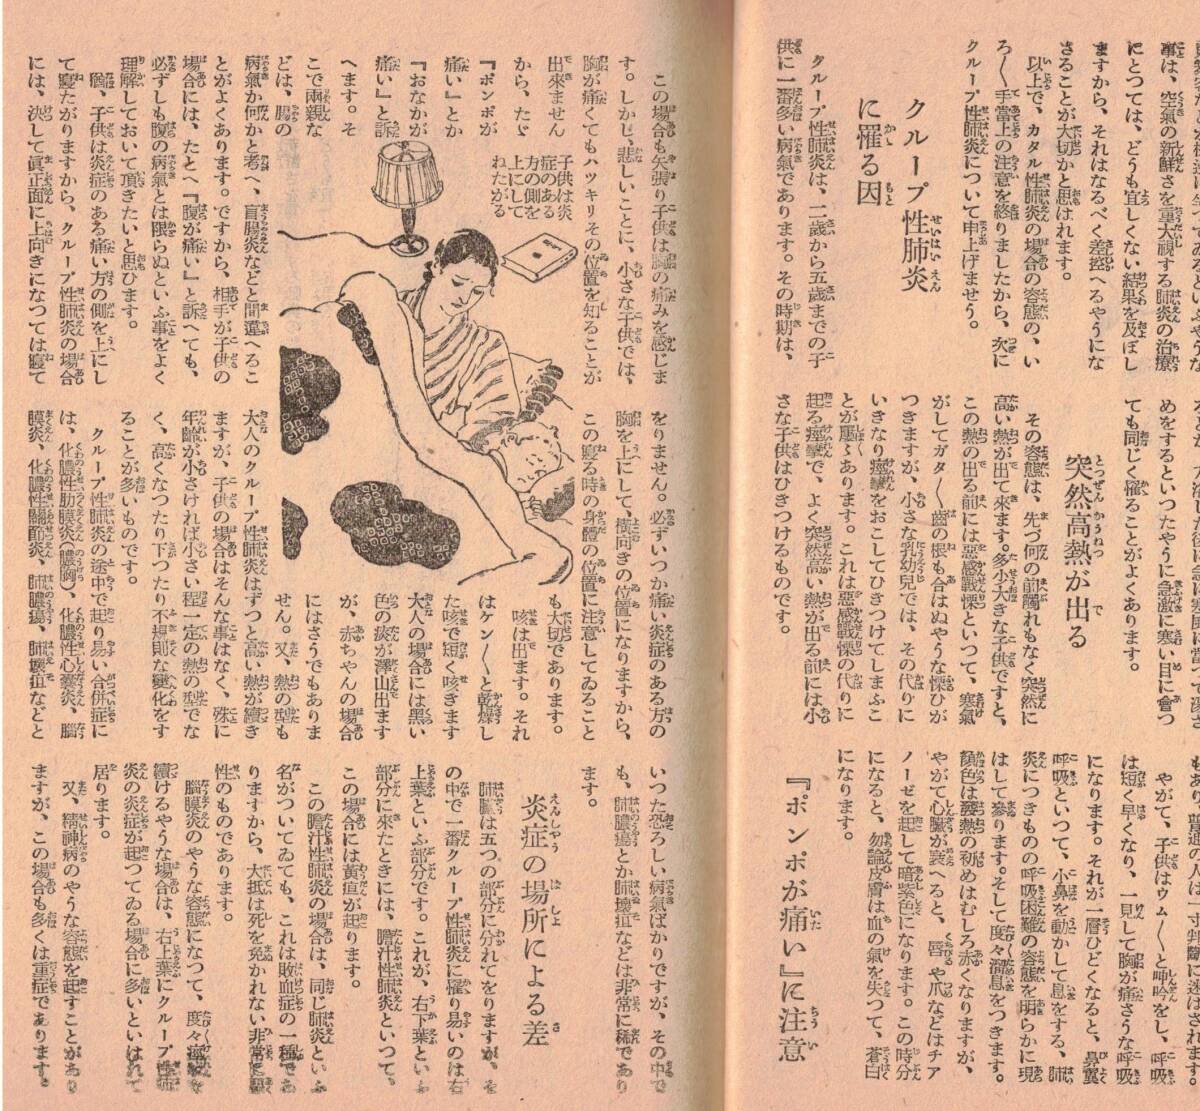 事は、空氣の新鮮さを重大視する肺炎の治療
にとつては、どうも宜しくない結果を及ぼし
ますから、それはなるべく差控へるやうにな
さることが大切かと思はれます。
以上で、カタル性肺炎の場合の容態の、い
ろ〱手當上の注意を終りましたから、次に
クループ性肺炎について申上げませう。
クループ性肺炎
に罹る因
クループ性肺炎は、二歳から五歳までの子
供に一番多い病氣であります。その時期は、
めをするといつたやうに急激に寒い目に會つ
ても同じく罹ることがよくあります。
突然高熱が出る
その容態は、先づ何の前觸れもなく突然に
高い熱が出て來ます。多少大きな子供ですと、
この熱の出る前には惡感戰慄といつて、寒氣
がしてガタ〱齒の根も合はぬやうな慄ひが
つきますが、小さな乳幼兒では、その代りに
いきなり痙攣をおこしてひきつけてしまふこ
とが屢〻あります。これは惡感戰慄の代りに
起る痙攣で、よく突然高い熱が出る前には小
さな子供はひきつけるものです。
もあり、普通の人は一寸判斷に迷はされます。
やがて、子供はウム〱と呻吟をし、呼吸
は短く早くなり、一見して胸が痛さうな呼吸
になります。それが一層ひどくなると、鼻翼
呼吸といつて、小鼻を動かして息をする、肺
炎につきものの呼吸困難の容態を明らかに現
はして參ります。そして度々溜息をつきます。
顏色は發熱の初めはむしろ赤くなりますが、
やがて心臟が衰へると、唇や爪などはチア
ノーゼを起して暗紫色になります。この時分
になると、勿論皮膚は血の氣を失つて、蒼白
になります。
『ポンポが痛い』に注意
この場合も矢張り子供は胸の痛みを感じま
す。しかし、悲しいことに、小さな子供では、
胸が痛くてもハツキリその位置を知ることが
出來ません
から、たゞ
『ポンポが
痛い』とか
『おなかが
痛い』と訴
へます。そ
こで兩親な
どは、腸の
病氣か何かと考へ、盲腸炎などと間違へるこ
とがよくあります。ですから、相手が子供の
場合には、たとへ『腹が痛い』と訴へても、
必ずしも腹の病氣とは限らぬといふ事をよく
理解しておいて頂きたいと思ひます。
尙、子供は炎症のある痛い方の側を上にし
て寢たがりますから、クループ性肺炎の場合
には、決して眞正面に上向きになつては寢て
子供は炎
症のある
方の側を
上にして
ねたがる
をりません。必ずいつか痛い炎症のある方の
胸を上にして、橫向きの位置になりますから、
この寢る時の身體の位置に注意してゐること
も大切であります。
咳は出ます。それ
はケン〱と乾燥し
た咳で短く咳きます
大人の場合には黑い
色の痰が澤山出ます
が、赤ちやんの場合
にはさうでもありま
せん。又、熱の型も
大人のクループ性肺炎はずつと高い熱が續き
ますが、子供の場合はそんな事はなく、殊に
年齡が小さければ小さい程一定の熱の型でな
く、高くなつたり下つたり不規則な變化をす
ることが多いものです。
クループ性肺炎の途中で起り易い合併症に
は、化膿性肋膜炎(膿胸)、化膿性心囊炎、腦
膜炎、化膿性關節炎、肺膿瘍、肺壞疽などと
いつた恐ろしい病氣ばかりですが、その中で
も、肺膿瘍とか肺壞疽などは非常に稀であり
ます。
炎症の場所による差
肺臟は五つの部分に分れてをりますが、そ
の中で一番クループ性肺炎に罹り易いのは右
上葉といふ部分です。これが、右下葉といふ
部分に來たときには、膽汁性肺炎といつて、
この場合には黃疸が起ります。
この膽汁性肺炎の場合は、同じ肺炎といふ
名がついてゐても、これは敗血症の一種であ
りますから、大抵は死を免かれない非常に惡
性のものであります。
腦膜炎のやうな容態になつて、度々痙攣を
續けるやうな場合は、右上葉にクループ性肺
炎の炎症が起つてゐる場合に多いといはれて
居ります。
又、精神病のやうな容態を起すことがあり
ますが、この場合も多くは重症であります。